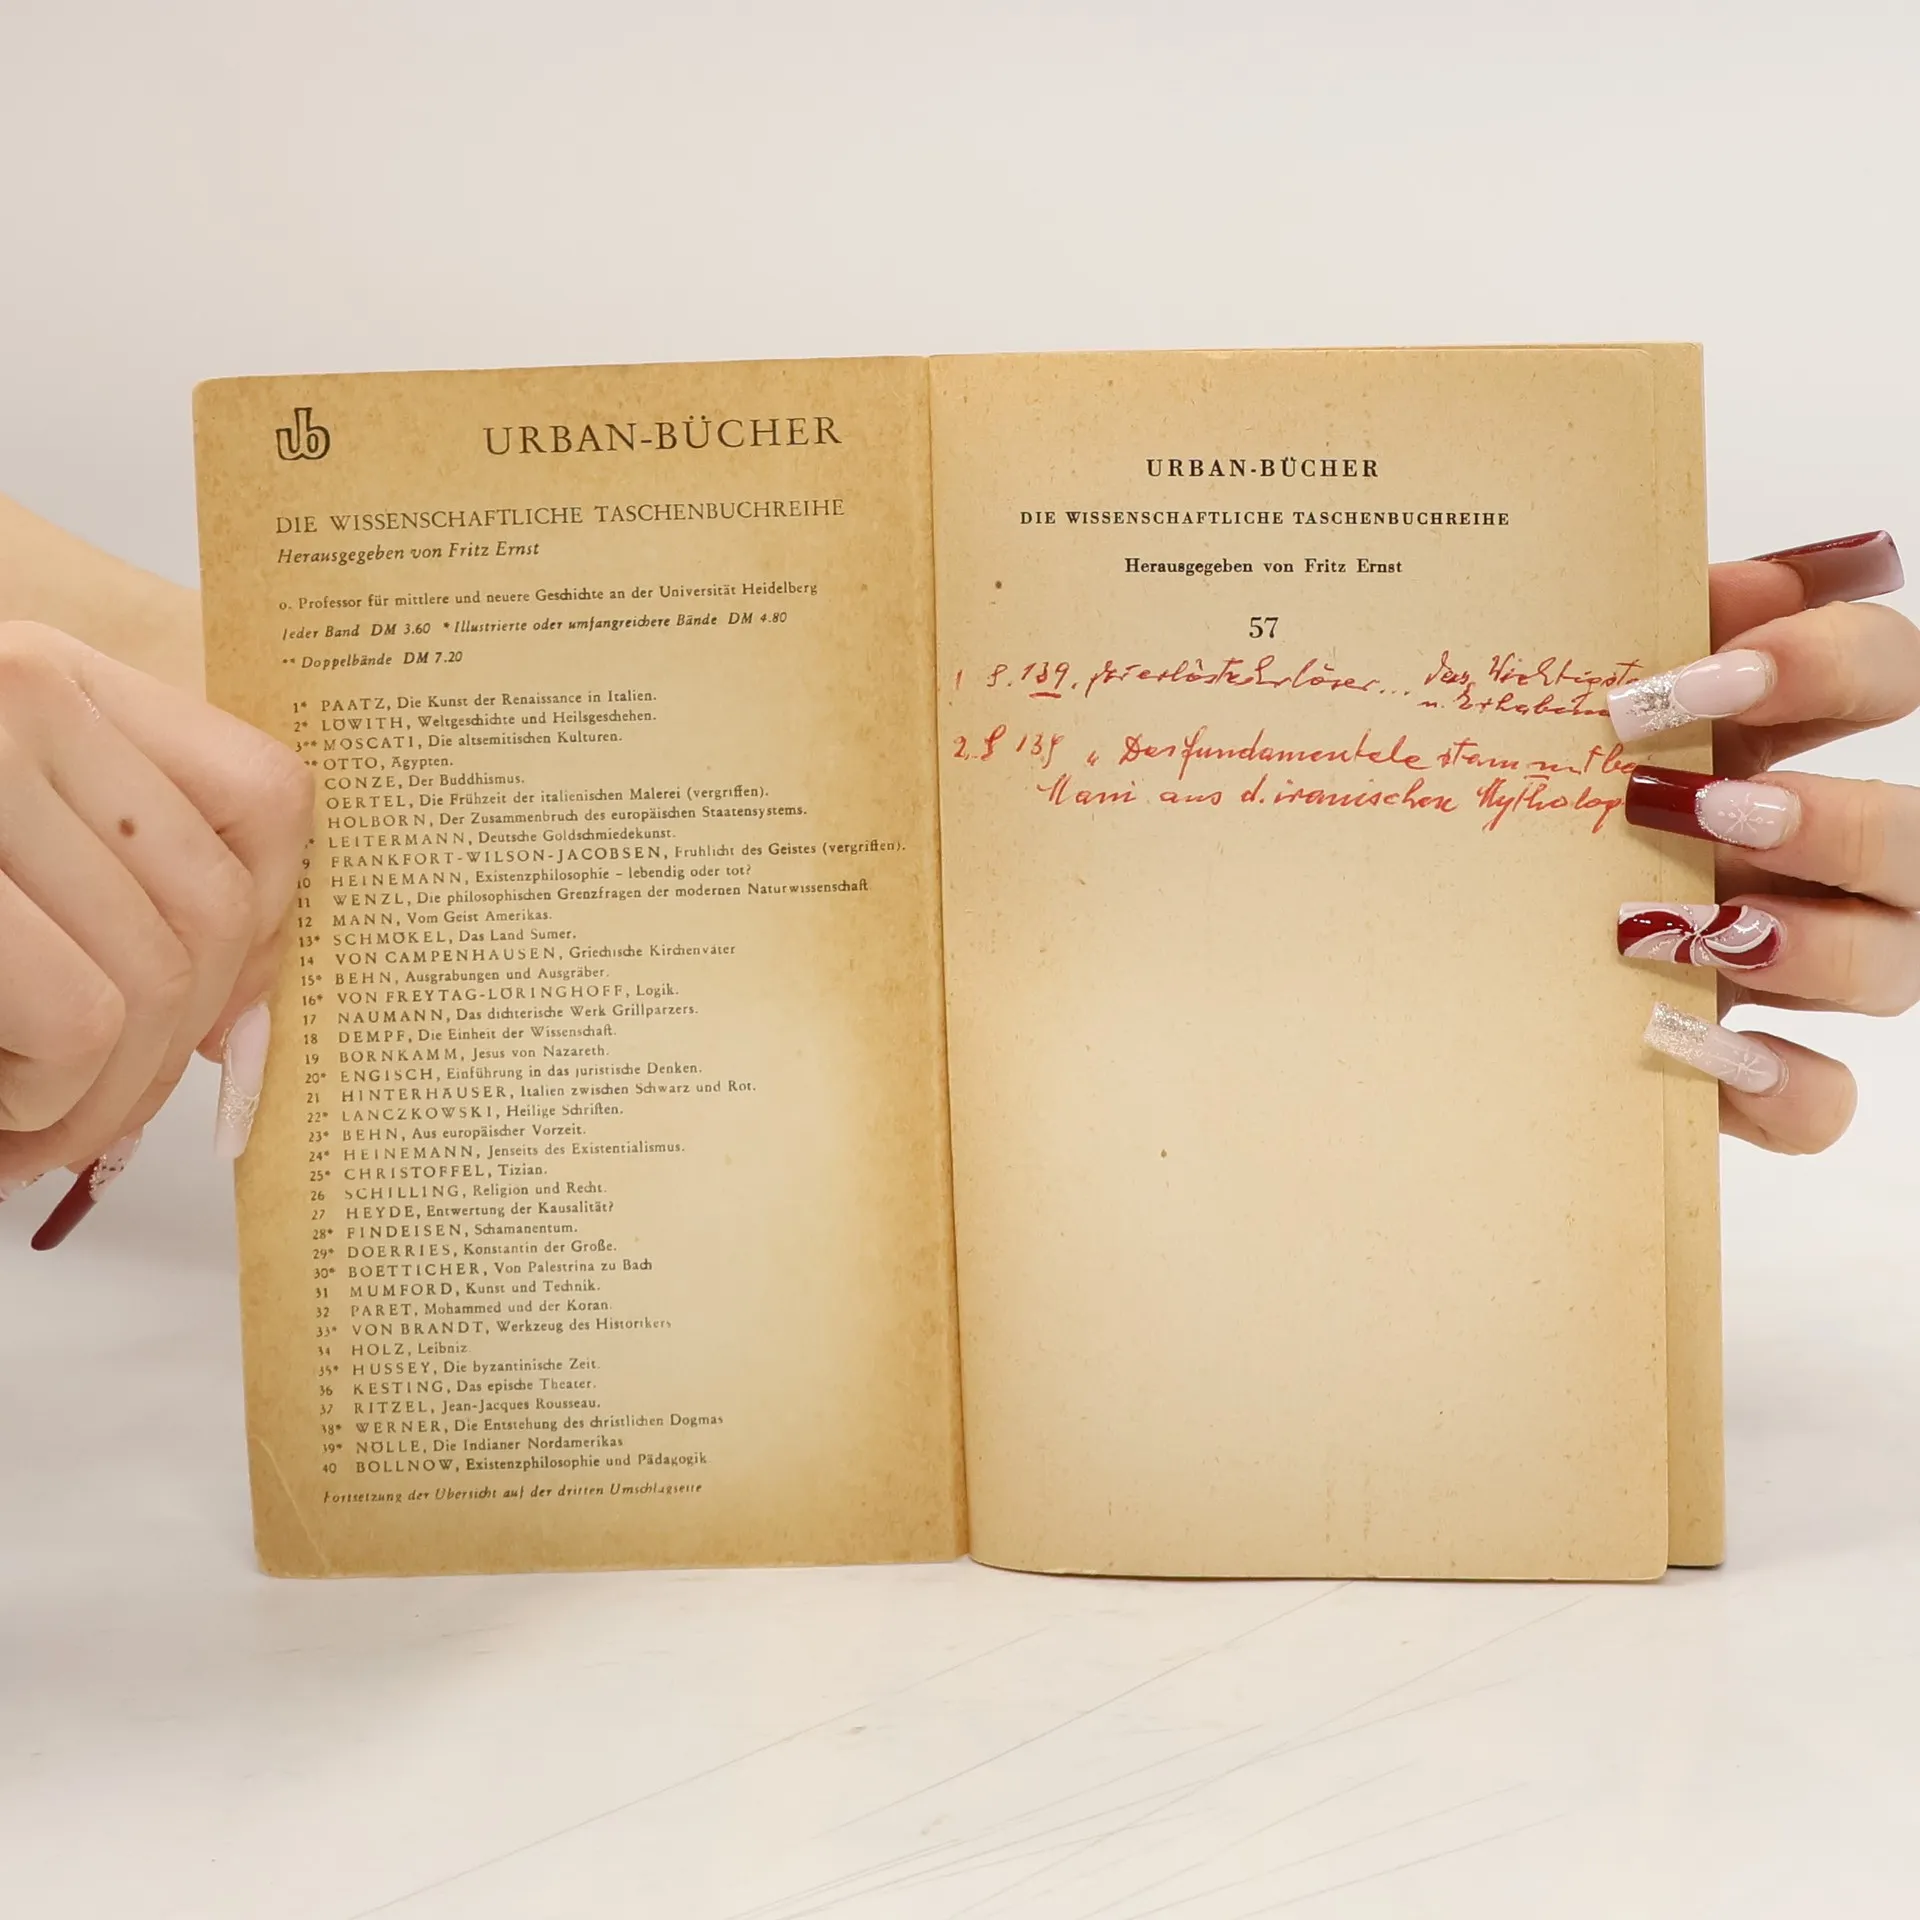 ub
URBAN-BÜCHER
DIE WISSENSCHAFTLICHE TASCHENBUCHREIHE
Herausgegeben von Fritz Ernst
o. Professor für mittlere und neuere Geschichte an der Universität Heidelberg
Jeder Band DM 3.60 * Illustrierte oder umfangreichere Bände DM 4.80
** Doppelbände DM 7.20
1* PAATZ, Die Kunst der Renaissance in Italien.
2* LÖWITH, Weltgeschichte und Heilsgeschehen.
3** MOSCATI, Die altsemitischen Kulturen.
** OTTO, Ägypten.
CONZE, Der Buddhismus.
OERTEL, Die Frühzeit der italienischen Malerei (vergriffen).
HOLBORN, Der Zusammenbruch des europäischen Staatensystems.
* LEITERMANN, Deutsche Goldschmiedekunst.
9 FRANKFORT-WILSON-JACOBSEN, Frühlicht des Geistes (vergriffen).
10 HEINEMANN, Existenzphilosophie – lebendig oder tot?
11 WENZL, Die philosophischen Grenzfragen der modernen Naturwissenschaft
12 MANN, Vom Geist Amerikas.
13* SCHMÖKEL, Das Land Sumer.
14 VON CAMPENHAUSEN, Griechische Kirchenväter
15* BEHN, Ausgrabungen und Ausgräber.
16* VON FREYTAG-LÖRINGHOFF, Logik.
17 NAUMANN, Das dichterische Werk Grillparzers.
18 DEMPF, Die Einheit der Wissenschaft.
19 BORNKAMM, Jesus von Nazareth.
20* ENGISCH, Einführung in das juristische Denken.
21 HINTERHÄUSER, Italien zwischen Schwarz und Rot.
22* LANCZKOWSKI, Heilige Schriften.
23* BEHN, Aus europäischer Vorzeit.
24* HEINEMANN, Jenseits des Existentialismus.
25* CHRISTOFFEL, Tizian.
26 SCHILLING, Religion und Recht.
27 HEYDE, Entwertung der Kausalität?
28* FINDEISEN, Schamanentum.
29* DOERRIES, Konstantin der Große.
30* BOETTICHER, Von Palestrina zu Bach
31 MUMFORD, Kunst und Technik.
32 PARET, Mohammed und der Koran.
33* VON BRANDT, Werkzeug des Historikers
34 HOLZ, Leibniz
35* HUSSEY, Die byzantinische Zeit.
36 KESTING, Das epische Theater.
37 RITZEL, Jean-Jacques Rousseau.
38* WERNER, Die Entstehung des christlichen Dogmas
39* NÖLLE, Die Indianer Nordamerikas
40 BOLLNOW, Existenzphilosophie und Pädagogik
Fortsetzung der Übersicht auf der dritten Umschlagseite
URBAN-BÜCHER
DIE WISSENSCHAFTLICHE TASCHENBUCHREIHE
Herausgegeben von Fritz Ernst
57
1 S. 139. erlöste Erlöser... das Wichtigste
u. Erhabene
2. S 139 „Das fundamentele stammt bei
Mani aus d. iranischen Mytholog